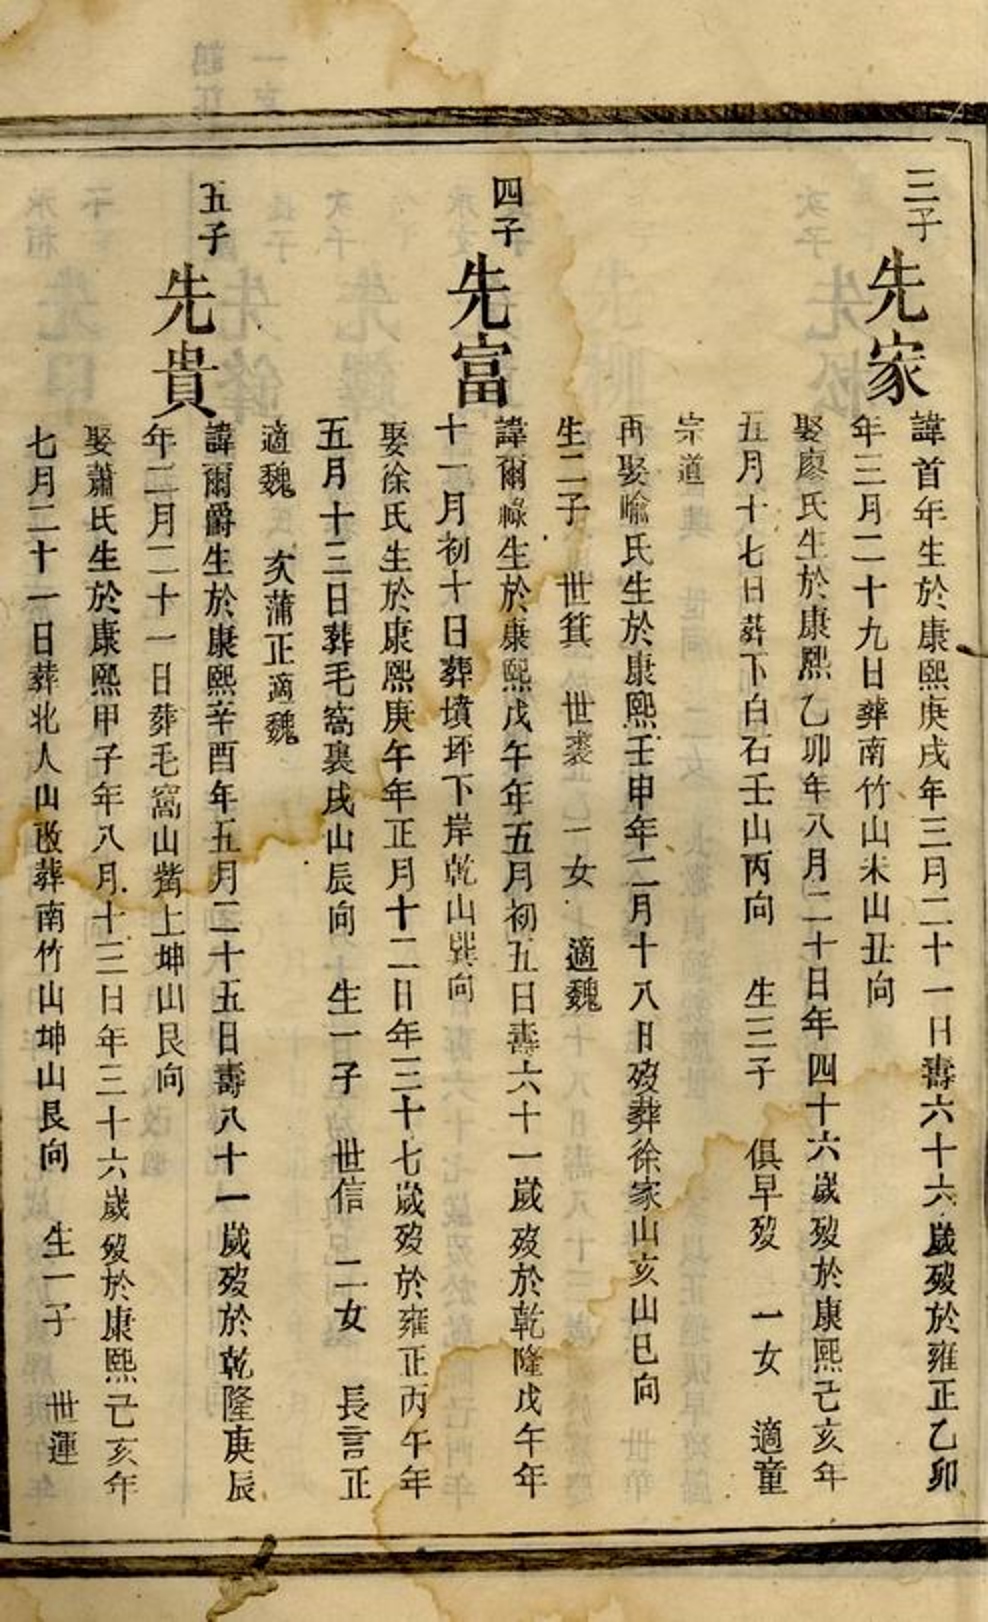 三子
先家
諱首年生於康熙庚戌年三月二十一日壽六十六歲歿於雍正乙卯
年三月二十九日葬南竹山未山丑向
娶廖氏生於康熙乙卯年八月二十日年四十六歲歿於康熙己亥年
五月十七日葬下白石壬山丙向 生三子 俱早歿 一女 適童
宗道
再娶喻氏生於康熙壬申年二月十八日歿葬徐家山亥山巳向
生二子 世箕 世裘 一女 適魏
四子
先富
諱爾祿生於康熙戊午年五月初五日壽六十一歲歿於乾隆戊午年
十一月初十日葬墳坪下岸乾山巽向
娶徐氏生於康熙庚午年正月十二日年三十七歲歿於雍正丙午年
五月十三日葬毛窩裏戌山辰向 生一子 世信 二女 長言正
適魏 次蒲正適魏
五子
先貴
諱爾爵生於康熙辛酉年五月二十五日壽八十一歲歿於乾隆庚辰
年二月二十一日葬毛窩山嘴上坤山艮向
娶蕭氏生於康熙甲子年八月十三日年三十六歲歿於康熙己亥年
七月二十一日葬北人山改葬南竹山坤山艮向 生一子 世運